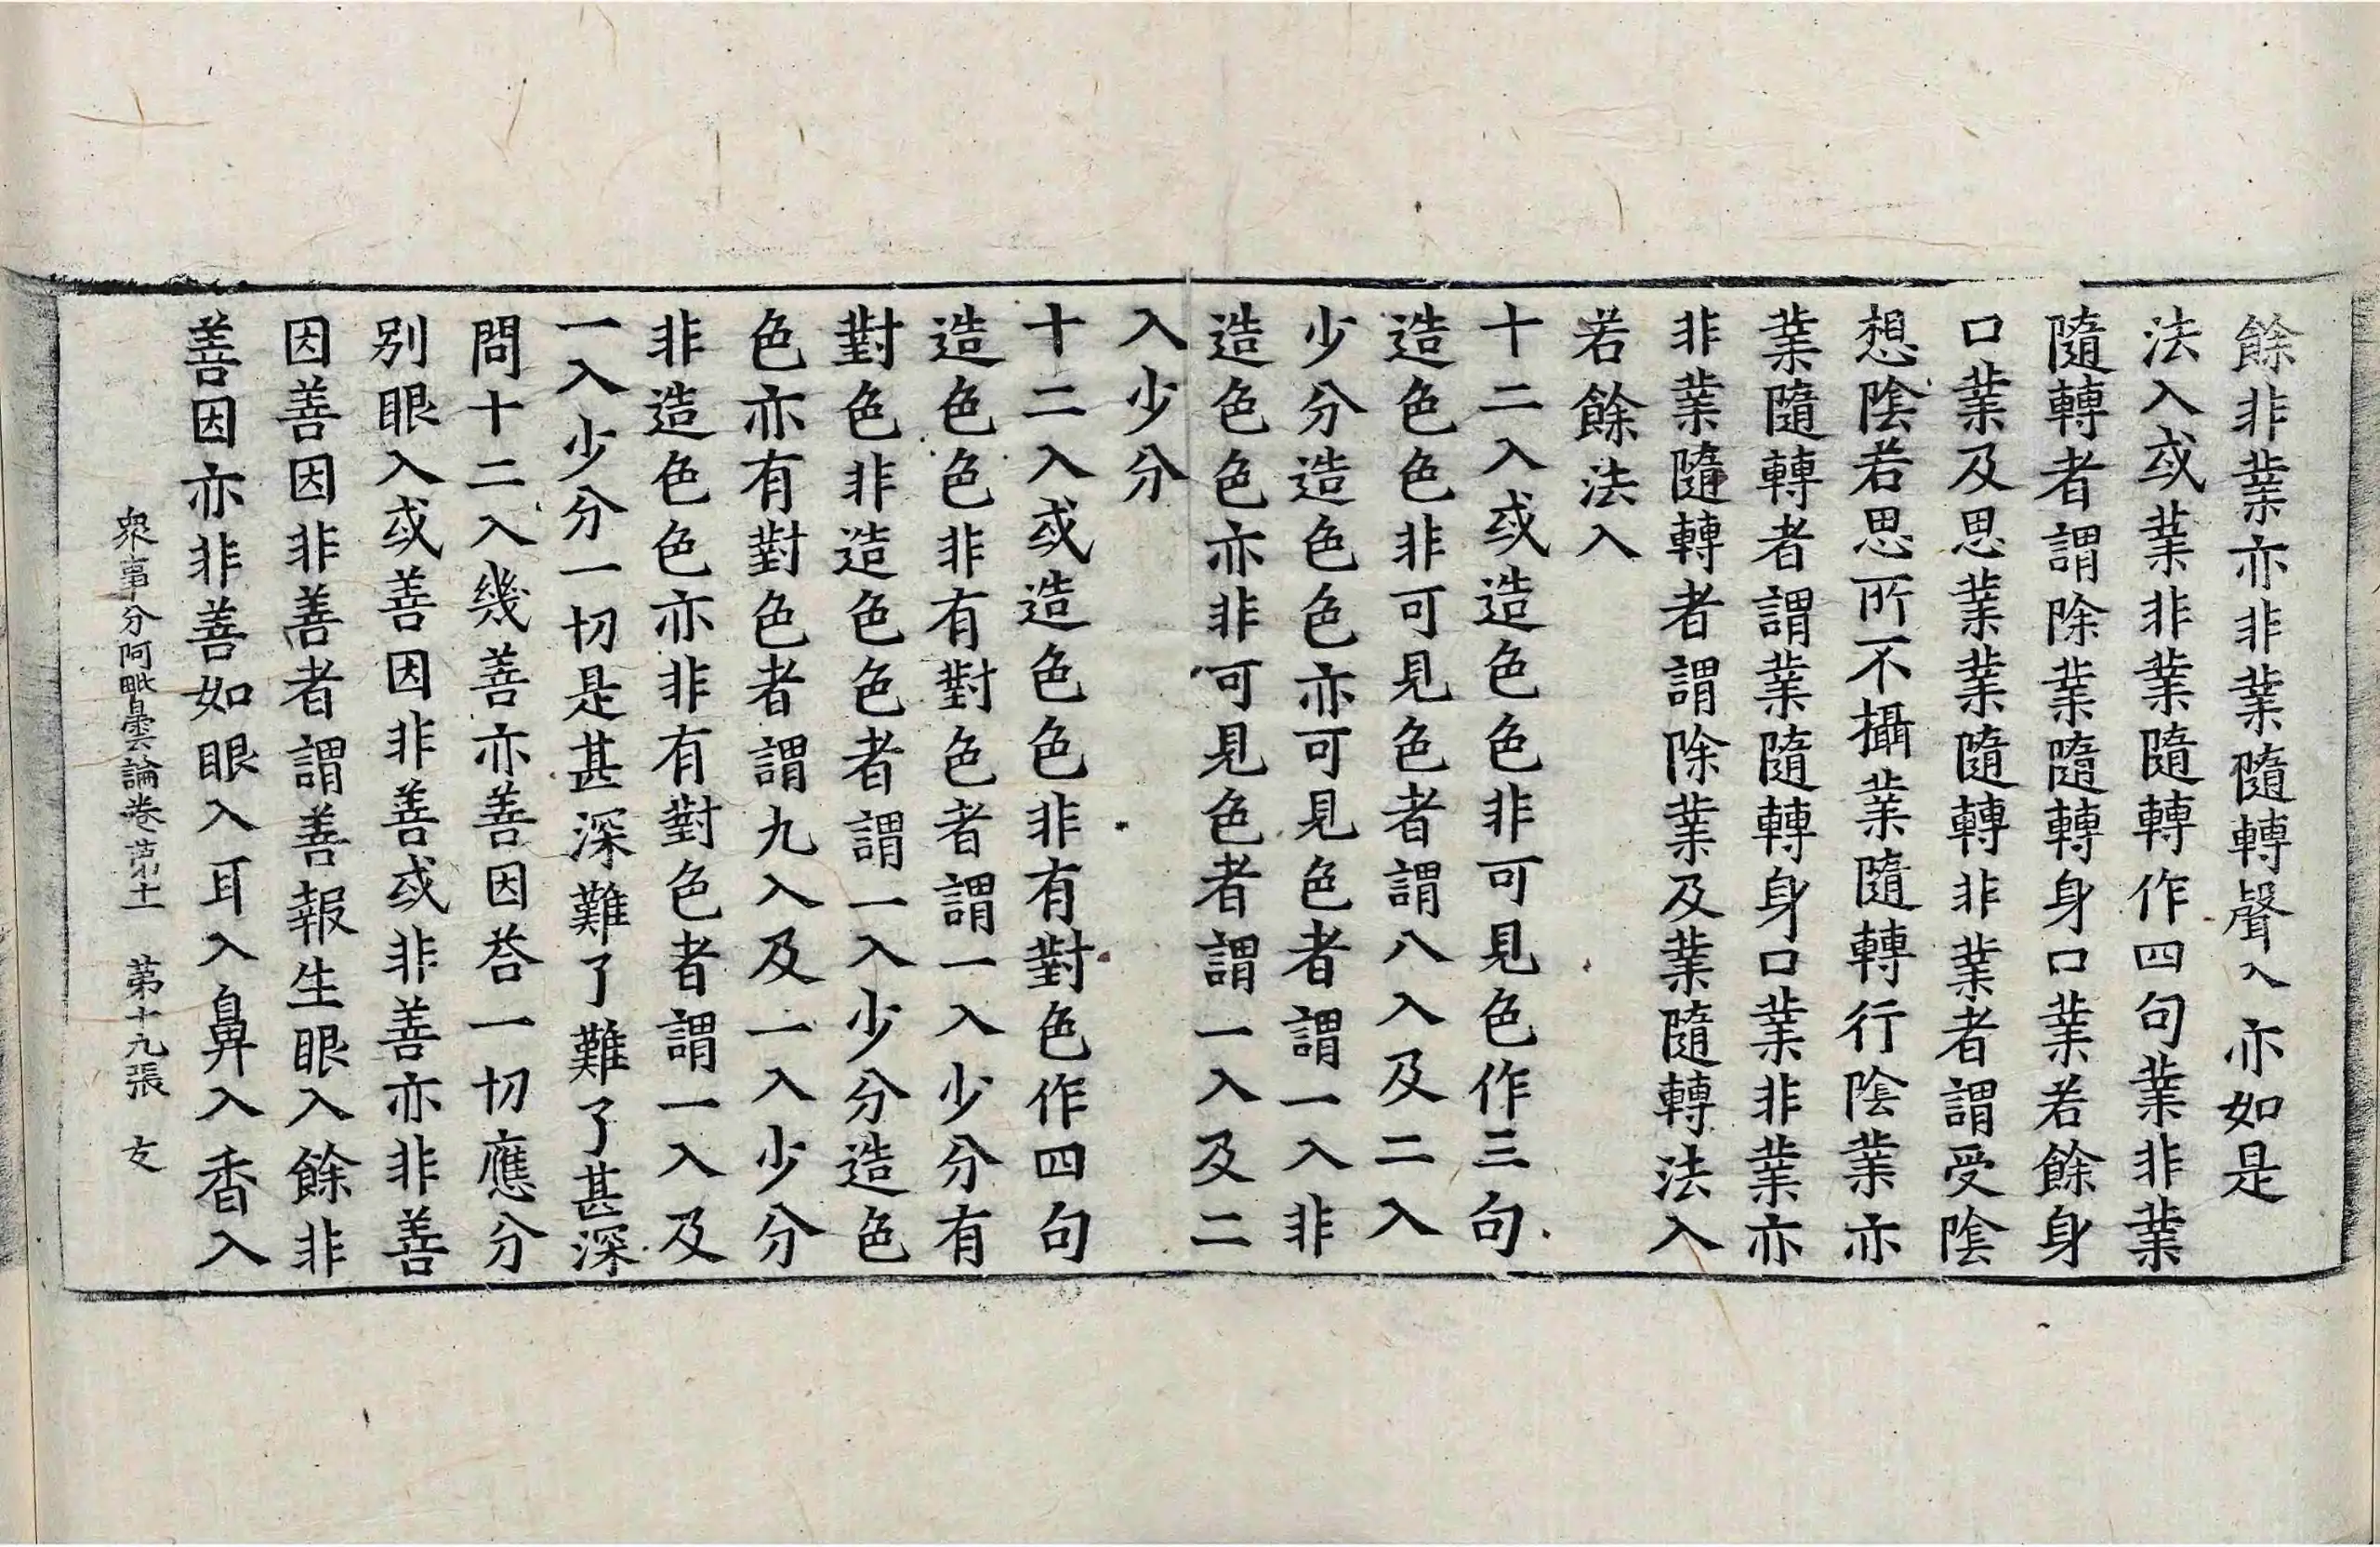 餘非業亦非業隨轉聲入亦如是
法入或業非業隨轉作四句業非業
隨轉者謂除業隨轉身口業若餘身
口業及思業業隨轉非業者謂受陰
想陰若思所不攝業隨轉行陰業亦
業隨轉者謂業隨轉身口業非業亦
非業隨轉者謂除業及業隨轉法入
若餘法入
十二入或造色色非可見色作三句
造色色非可見色者謂八入及二入
少分造色色亦可見色者謂一入非
造色色亦非可見色者謂一入及二
入少分
十二入或造色色非有對色作四句
造色色非有對色者謂一入少分有
對色非造色色者謂一入少分造色
色亦有對色者謂九入及一入少分
非造色色亦非有對色者謂一入及
一入少分一切是甚深難了難了甚深
問十二入幾善亦善因荅一切應分
別眼入或善因非善或非善亦非善
因善因非善者謂善報生眼入餘非
善因亦非善如眼入耳入鼻入香入
衆事分阿毗曇論卷第十一　第十九張　支